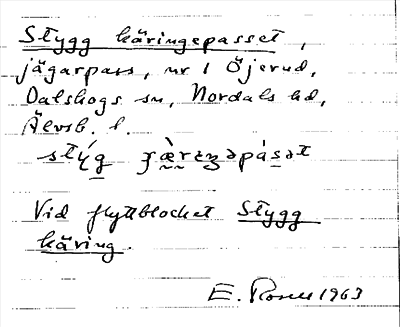 Stygg käringepasset,
jägarpass, nr 1 Öjerud,
Dalskogs sn, Nordals hd,
Älvsb. l.
Vid flyttblocket Stygg
käring.
E. 1963